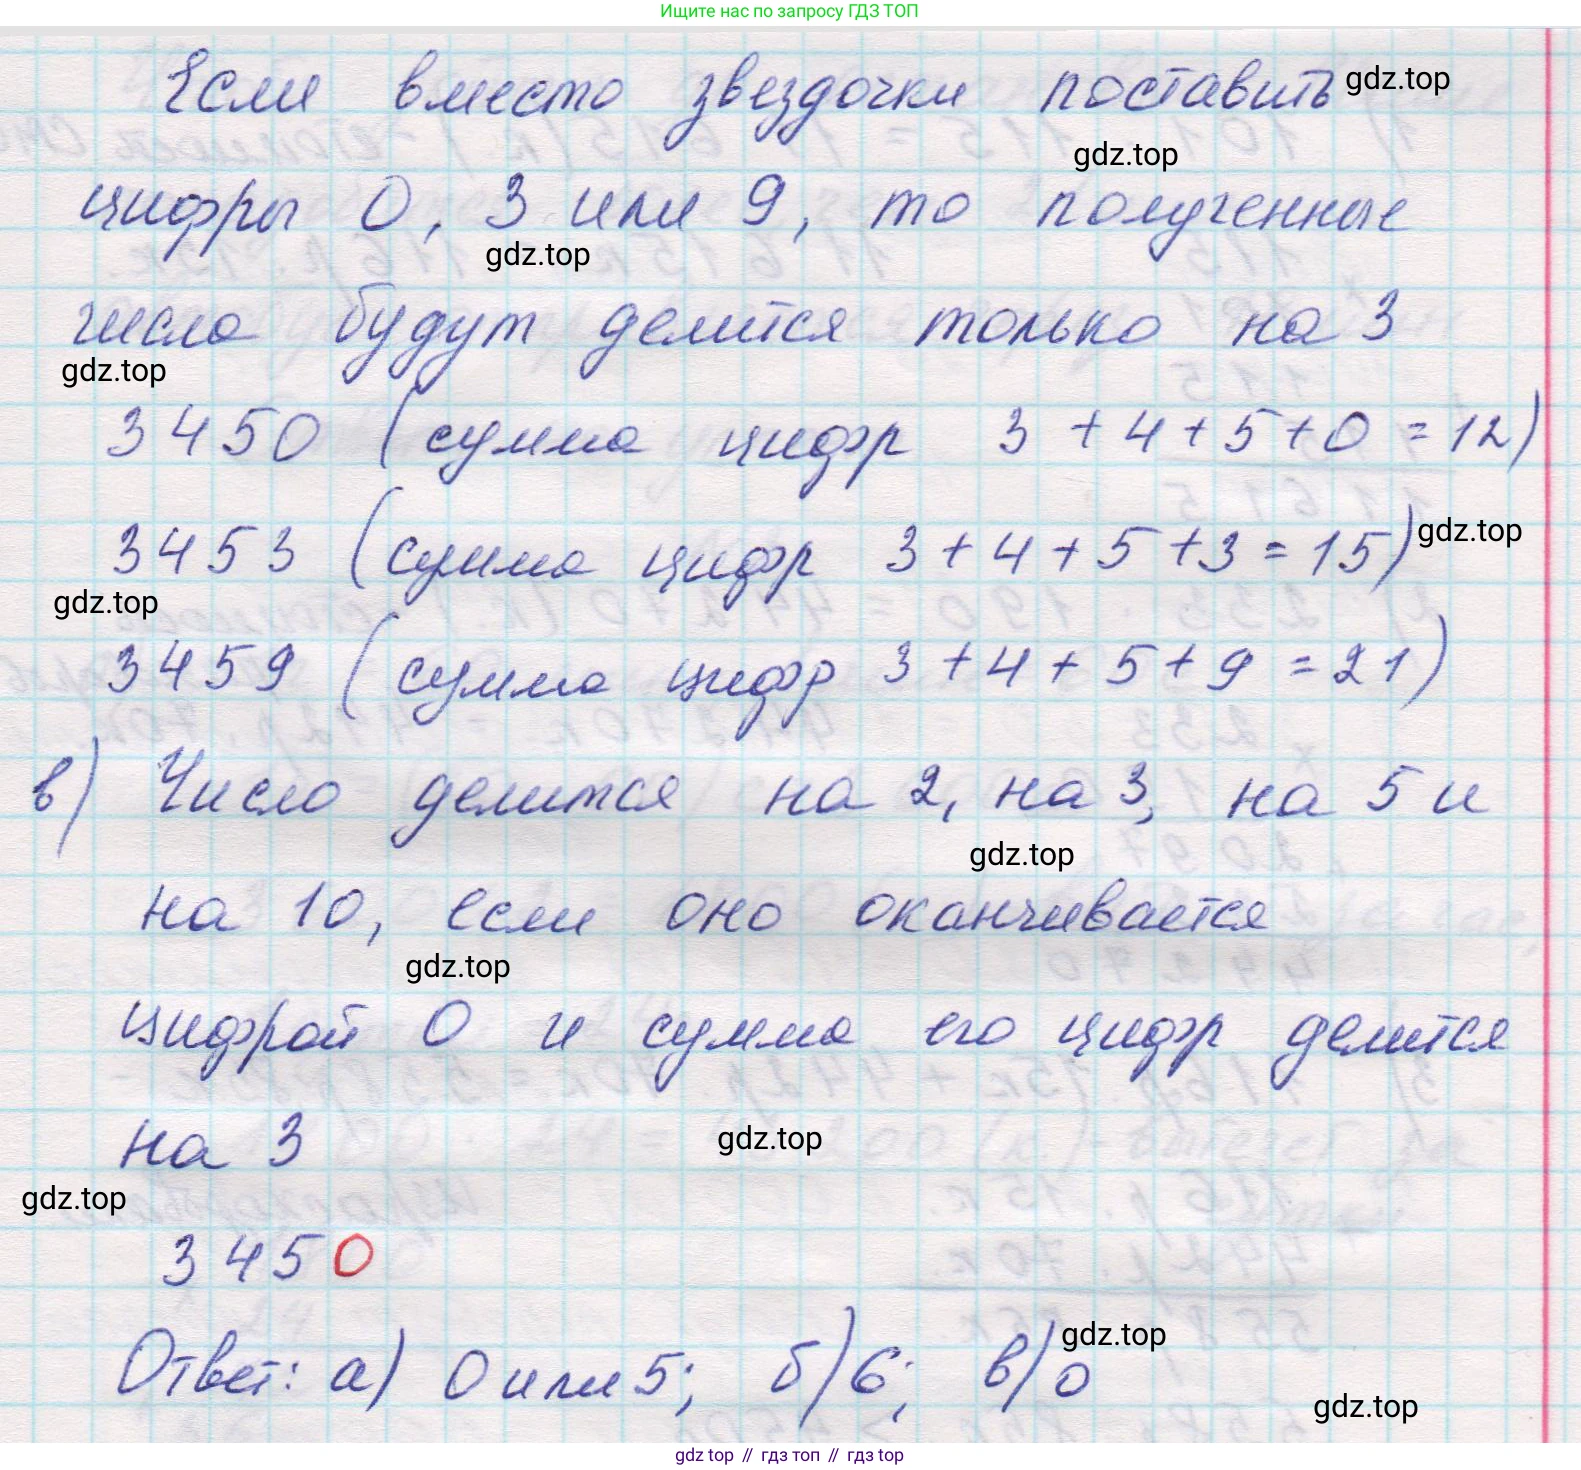 Ищите нас по запросу ГДЗ ТОП
Если вместо звездочки поставить
gdz.top
gdz.top
цифры 0, 3 или 9, то полученные
gdz.top
числа будут делится только на 3
gdz.top
3450 (сумма цифр 3 + 4 + 5 + 0 = 12)
3453 (сумма цифр 3 + 4 + 5 + 3 = 15)
gdz.top
gdz.top
3459 (сумма цифр 3 + 4 + 5 + 9 = 21)
в) Число делится на 2, на 3, на 5 и
gdz.top
на 10, если оно оканчивается
gdz.top
цифрой 0 и сумма его цифр делится
на 3
gdz.top
gdz.top
3450
gdz.top
Ответ: а) 0 или 5; б) 6; в) 0
gdz.top
gdz top // гдз топ // гдз top